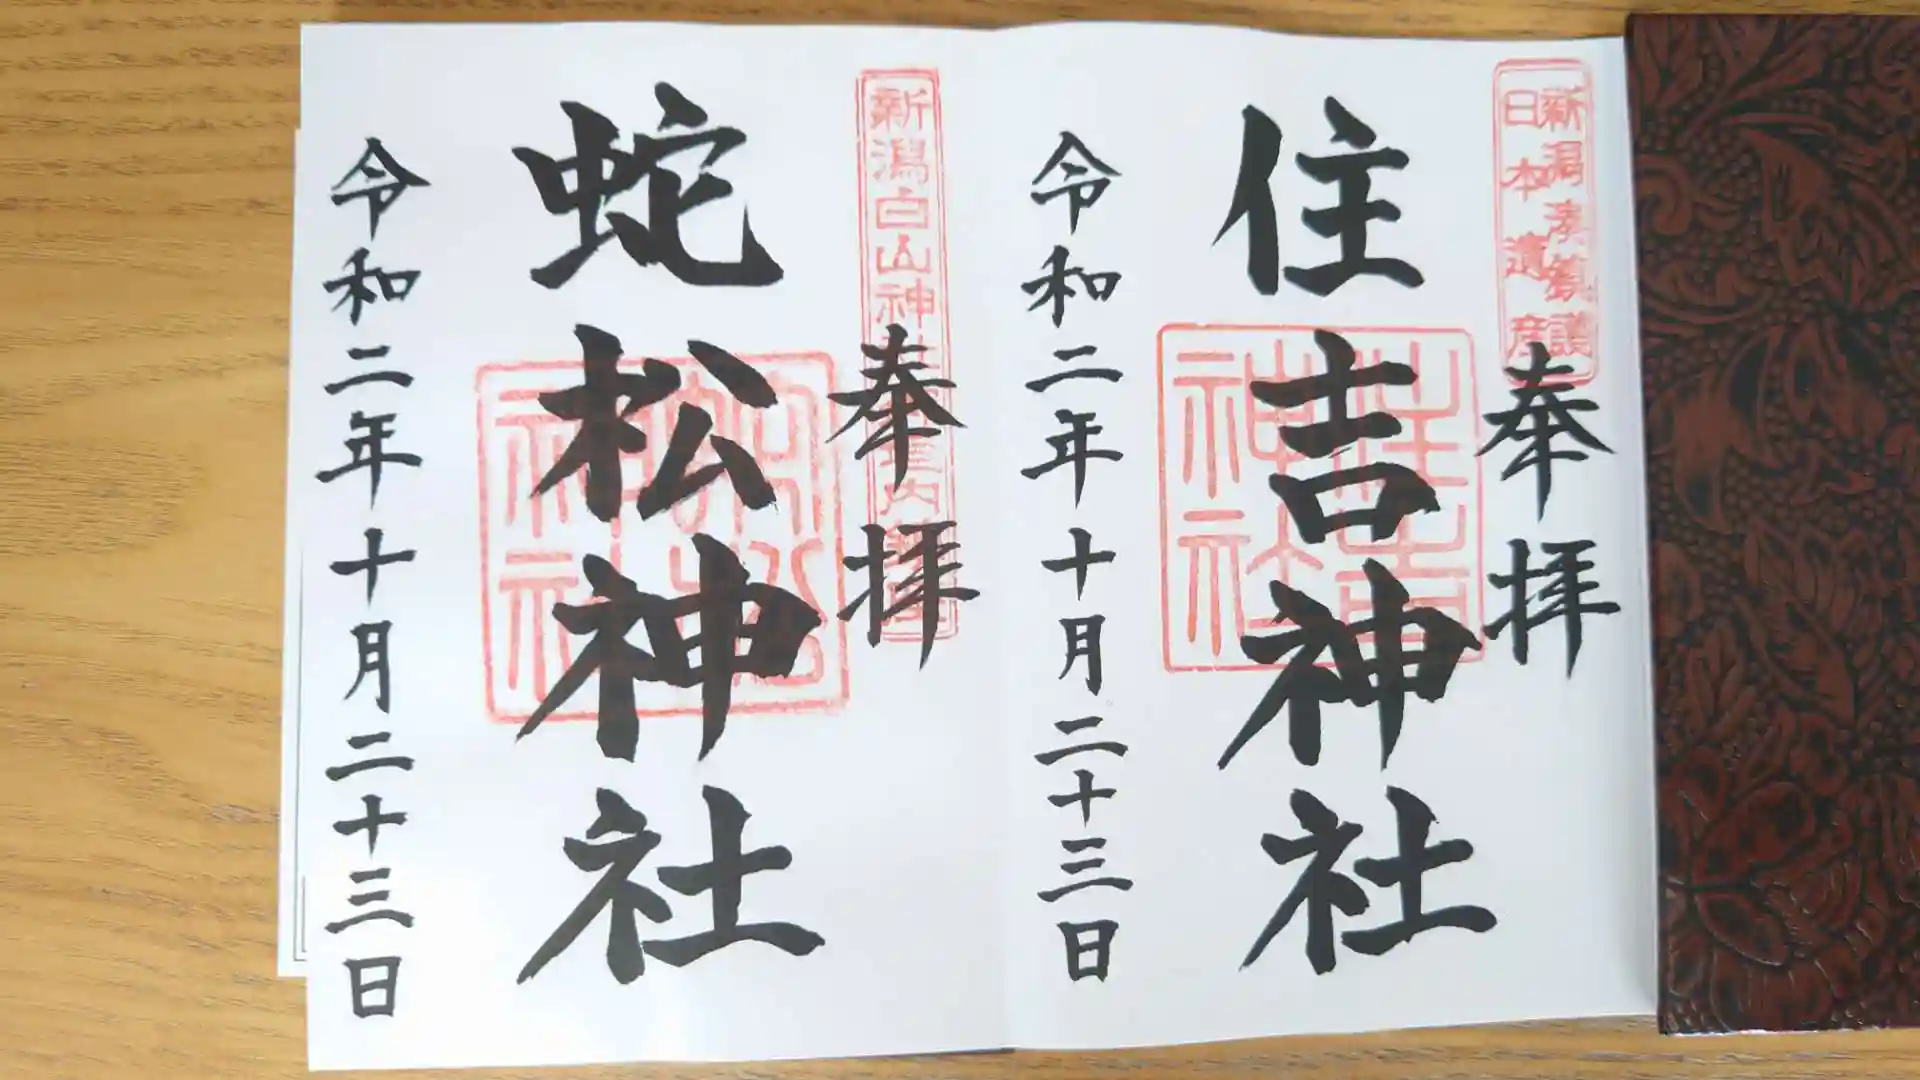 新潟湊鎮護
日本遺産
奉拝
住吉神社
住吉
神社
令和二年十月二十三日
新潟白山神
奉拝
蛇松神社
蛇松
神社
令和二年十月二十三日